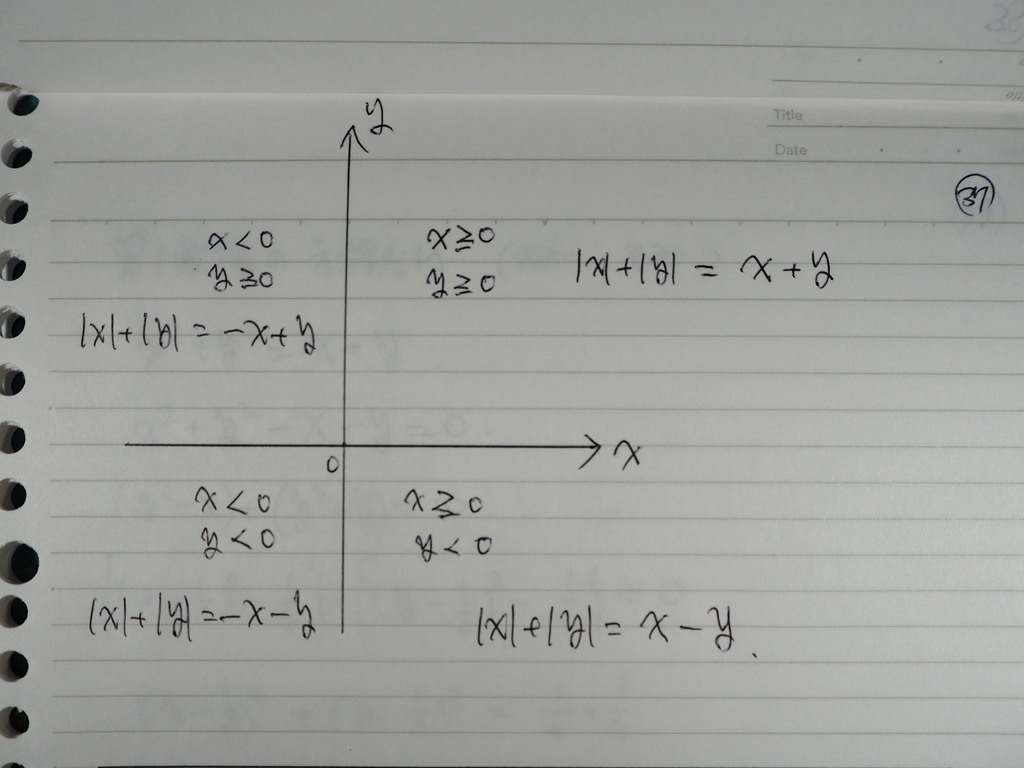 Title
Date
y
x<0
y≧0
|x|+|y| = -x+y
x≧0
y≧0
|x|+|y| = x+y
0
x
x<0
y<0
|x|+|y|=-x-y
x≧0
y<0
|x|+|y|= x-y.